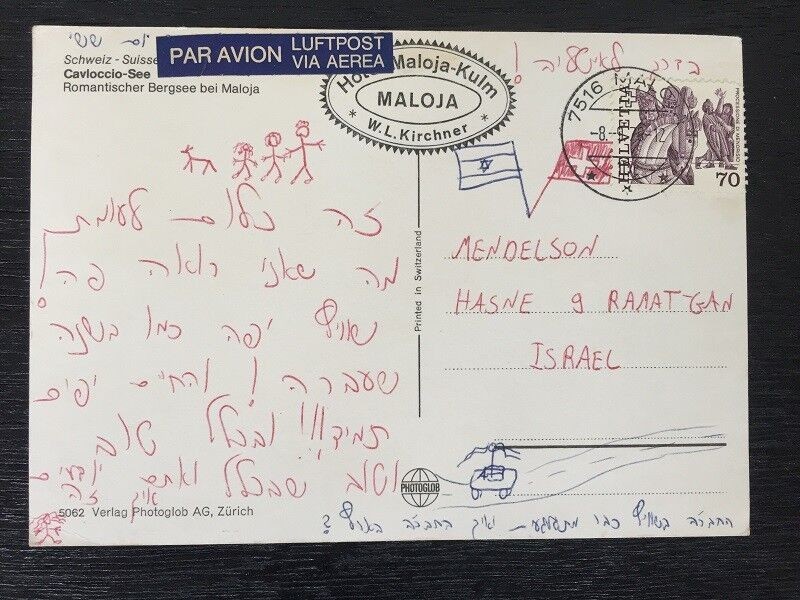 יום שישי
Schweiz - Suisse
Cavloccio-See
Romantischer Bergsee bei Maloja
PAR AVION
LUFTPOST
VIA AEREA
Maloja-Kulm
MALOJA
W.L. Kirchner
בדרך לאיטליה!
7516
-8.
HELVETIA
PROCESSIONE DI MENDRISIO
70
זה כלום לעומת
מה שאני רואה פה!
שוויץ יפה כמו בשנה
שעברה! והחיים יפים
תמיד!!! ובכלל טוב
וטוב שבכלל ואתם יודעים
איך זה
Printed in Switzerland
MENDELSON
HASNE 9 RAMAT-GAN
ISRAEL
PHOTOGLOB
5062 Verlag Photoglob AG, Zürich
החברה בשוויץ כבר - ואיך החברה בארץ?